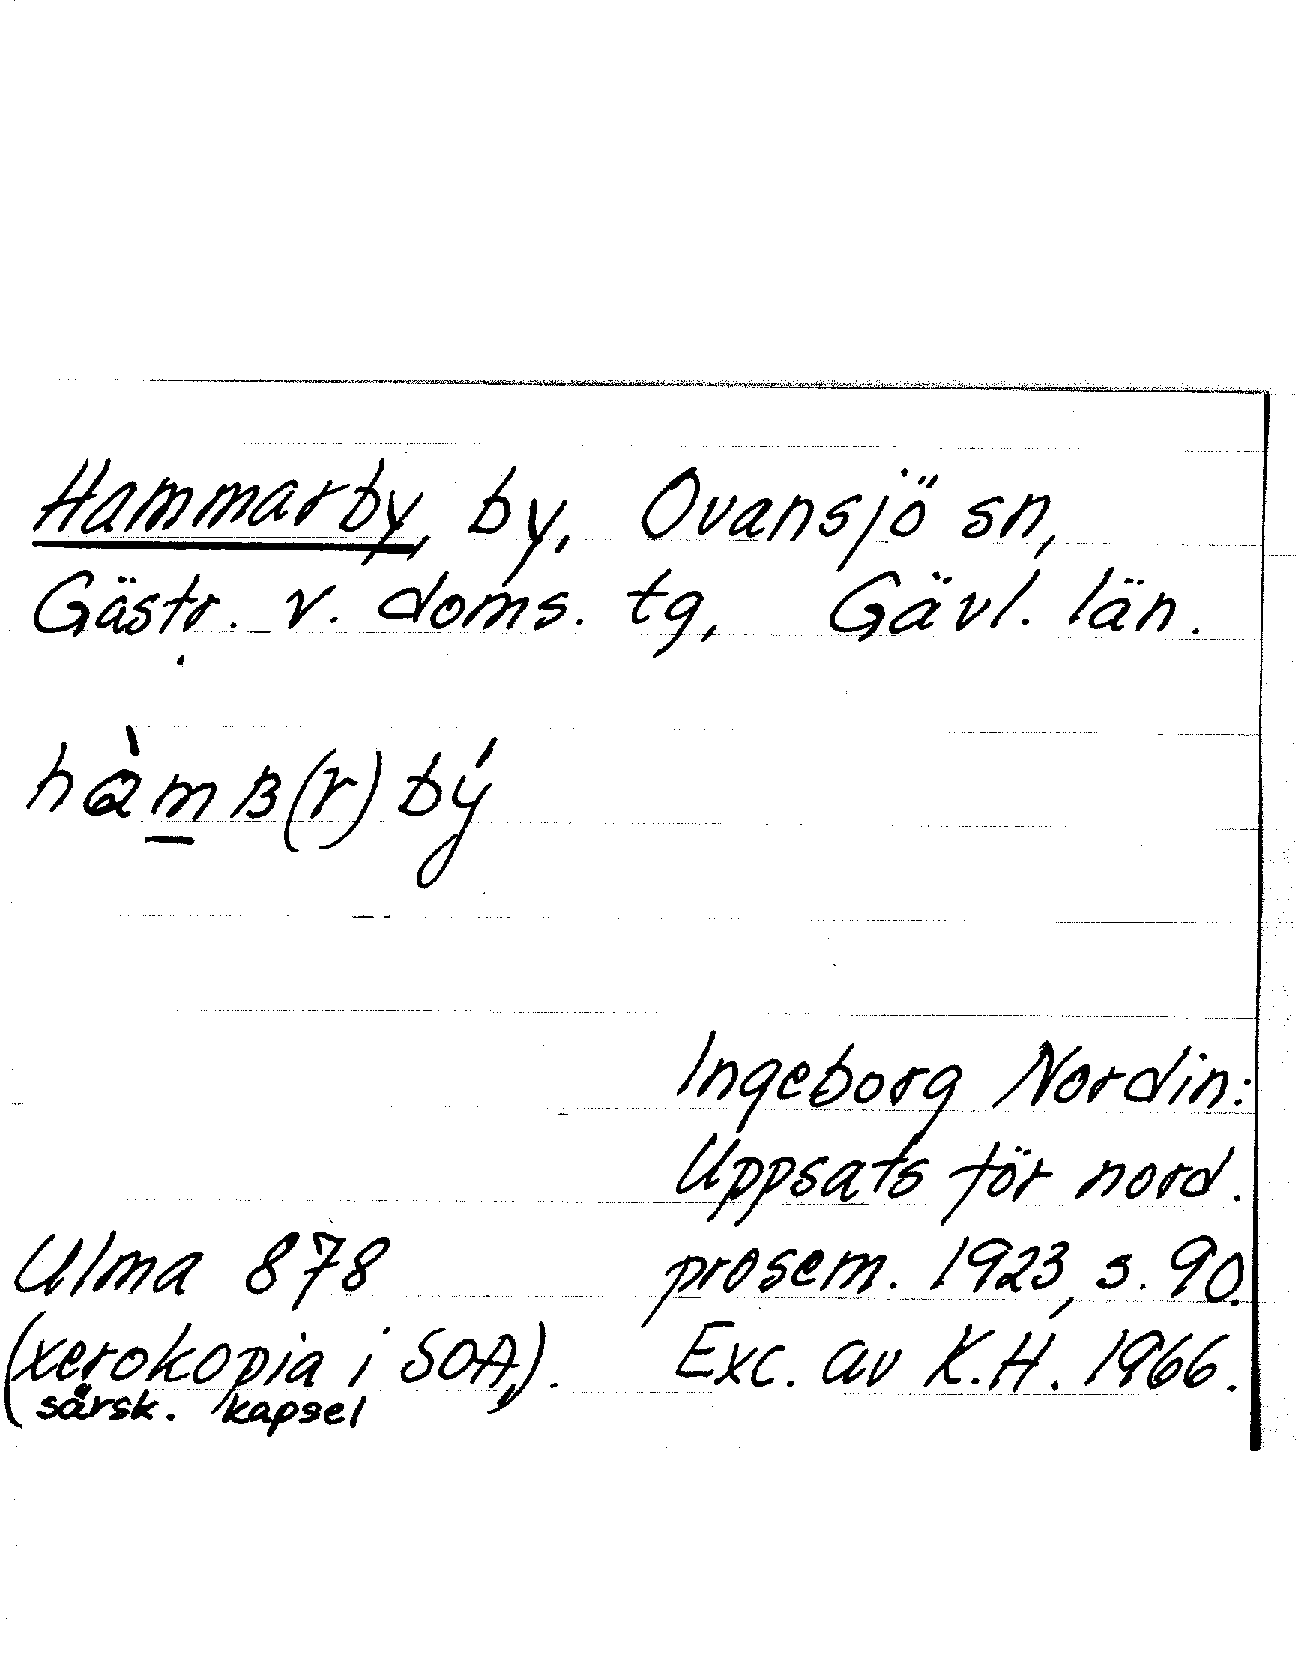 Hammarby, by, Ovansjö sn,
Gästr. v. doms. tg, Gävl. län.
hàmʙ(r)bý
Ingeborg Nordin:
Uppsats för nord.
prosem. 1923, s. 90.
Exc. av K.H. 1966.
Ulma 878
(xerokopia i SOA,).
särsk. kapsel